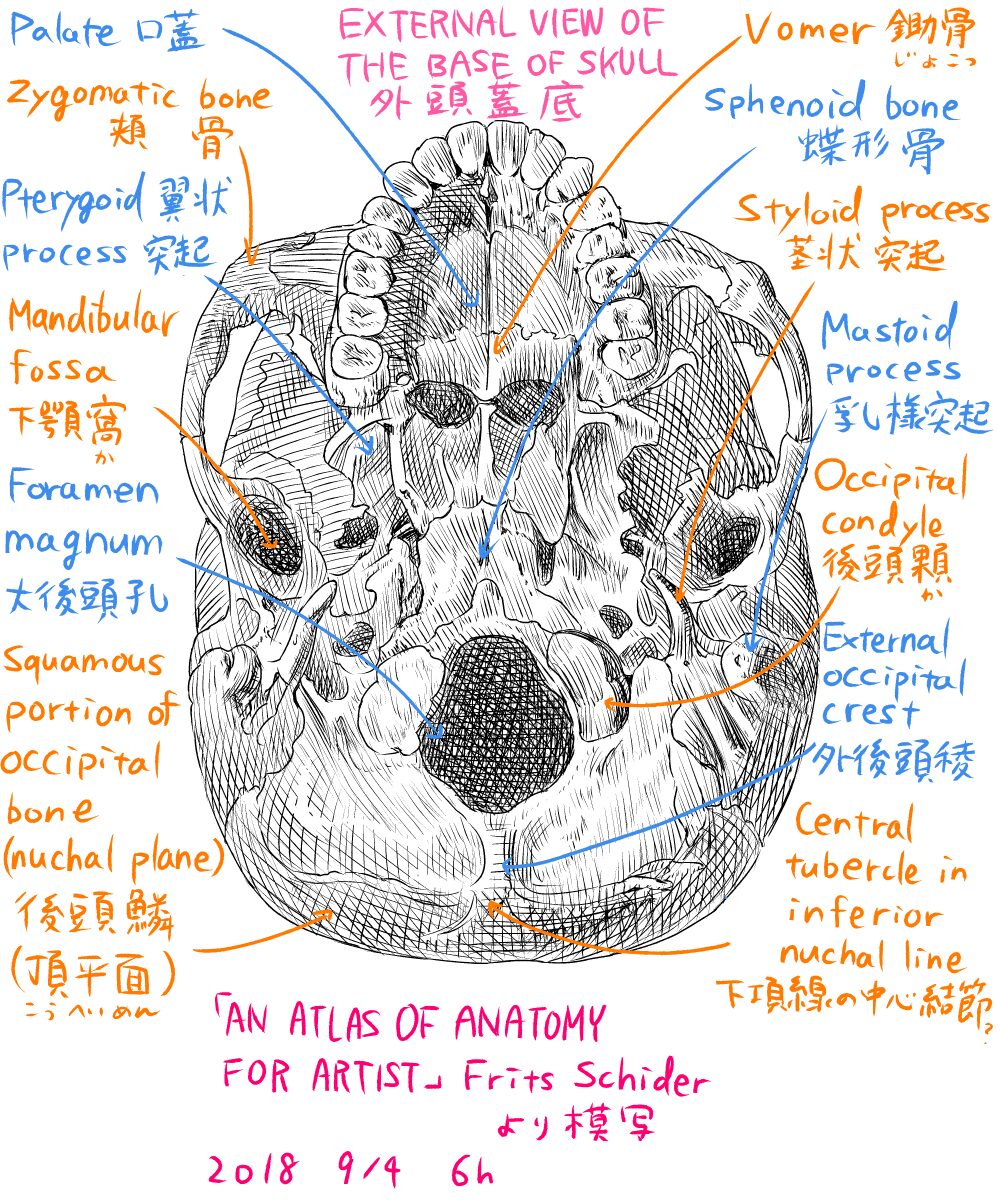 EXTERNAL VIEW OF
THE BASE OF SKULL
外頭蓋底
Palate 口蓋
Zygomatic bone
頬骨
Pterygoid 翼状
process 突起
Mandibular
fossa
下顎窩
か
Foramen
magnum
大後頭孔
Squamous
portion of
occipital
bone
(nuchal plane)
後頭鱗
(項平面)
こうへいめん
Vomer 鋤骨
じょこつ
Sphenoid bone
蝶形骨
Styloid process
茎状突起
Mastoid
process
乳様突起
Occipital
condyle
後頭顆
か
External
occipital
crest
外後頭稜
Central
tubercle in
inferior
nuchal line
下項線の中心結節?
「AN ATLAS OF ANATOMY
FOR ARTIST」 Frits Schider
より模写
2018 9/4 6h